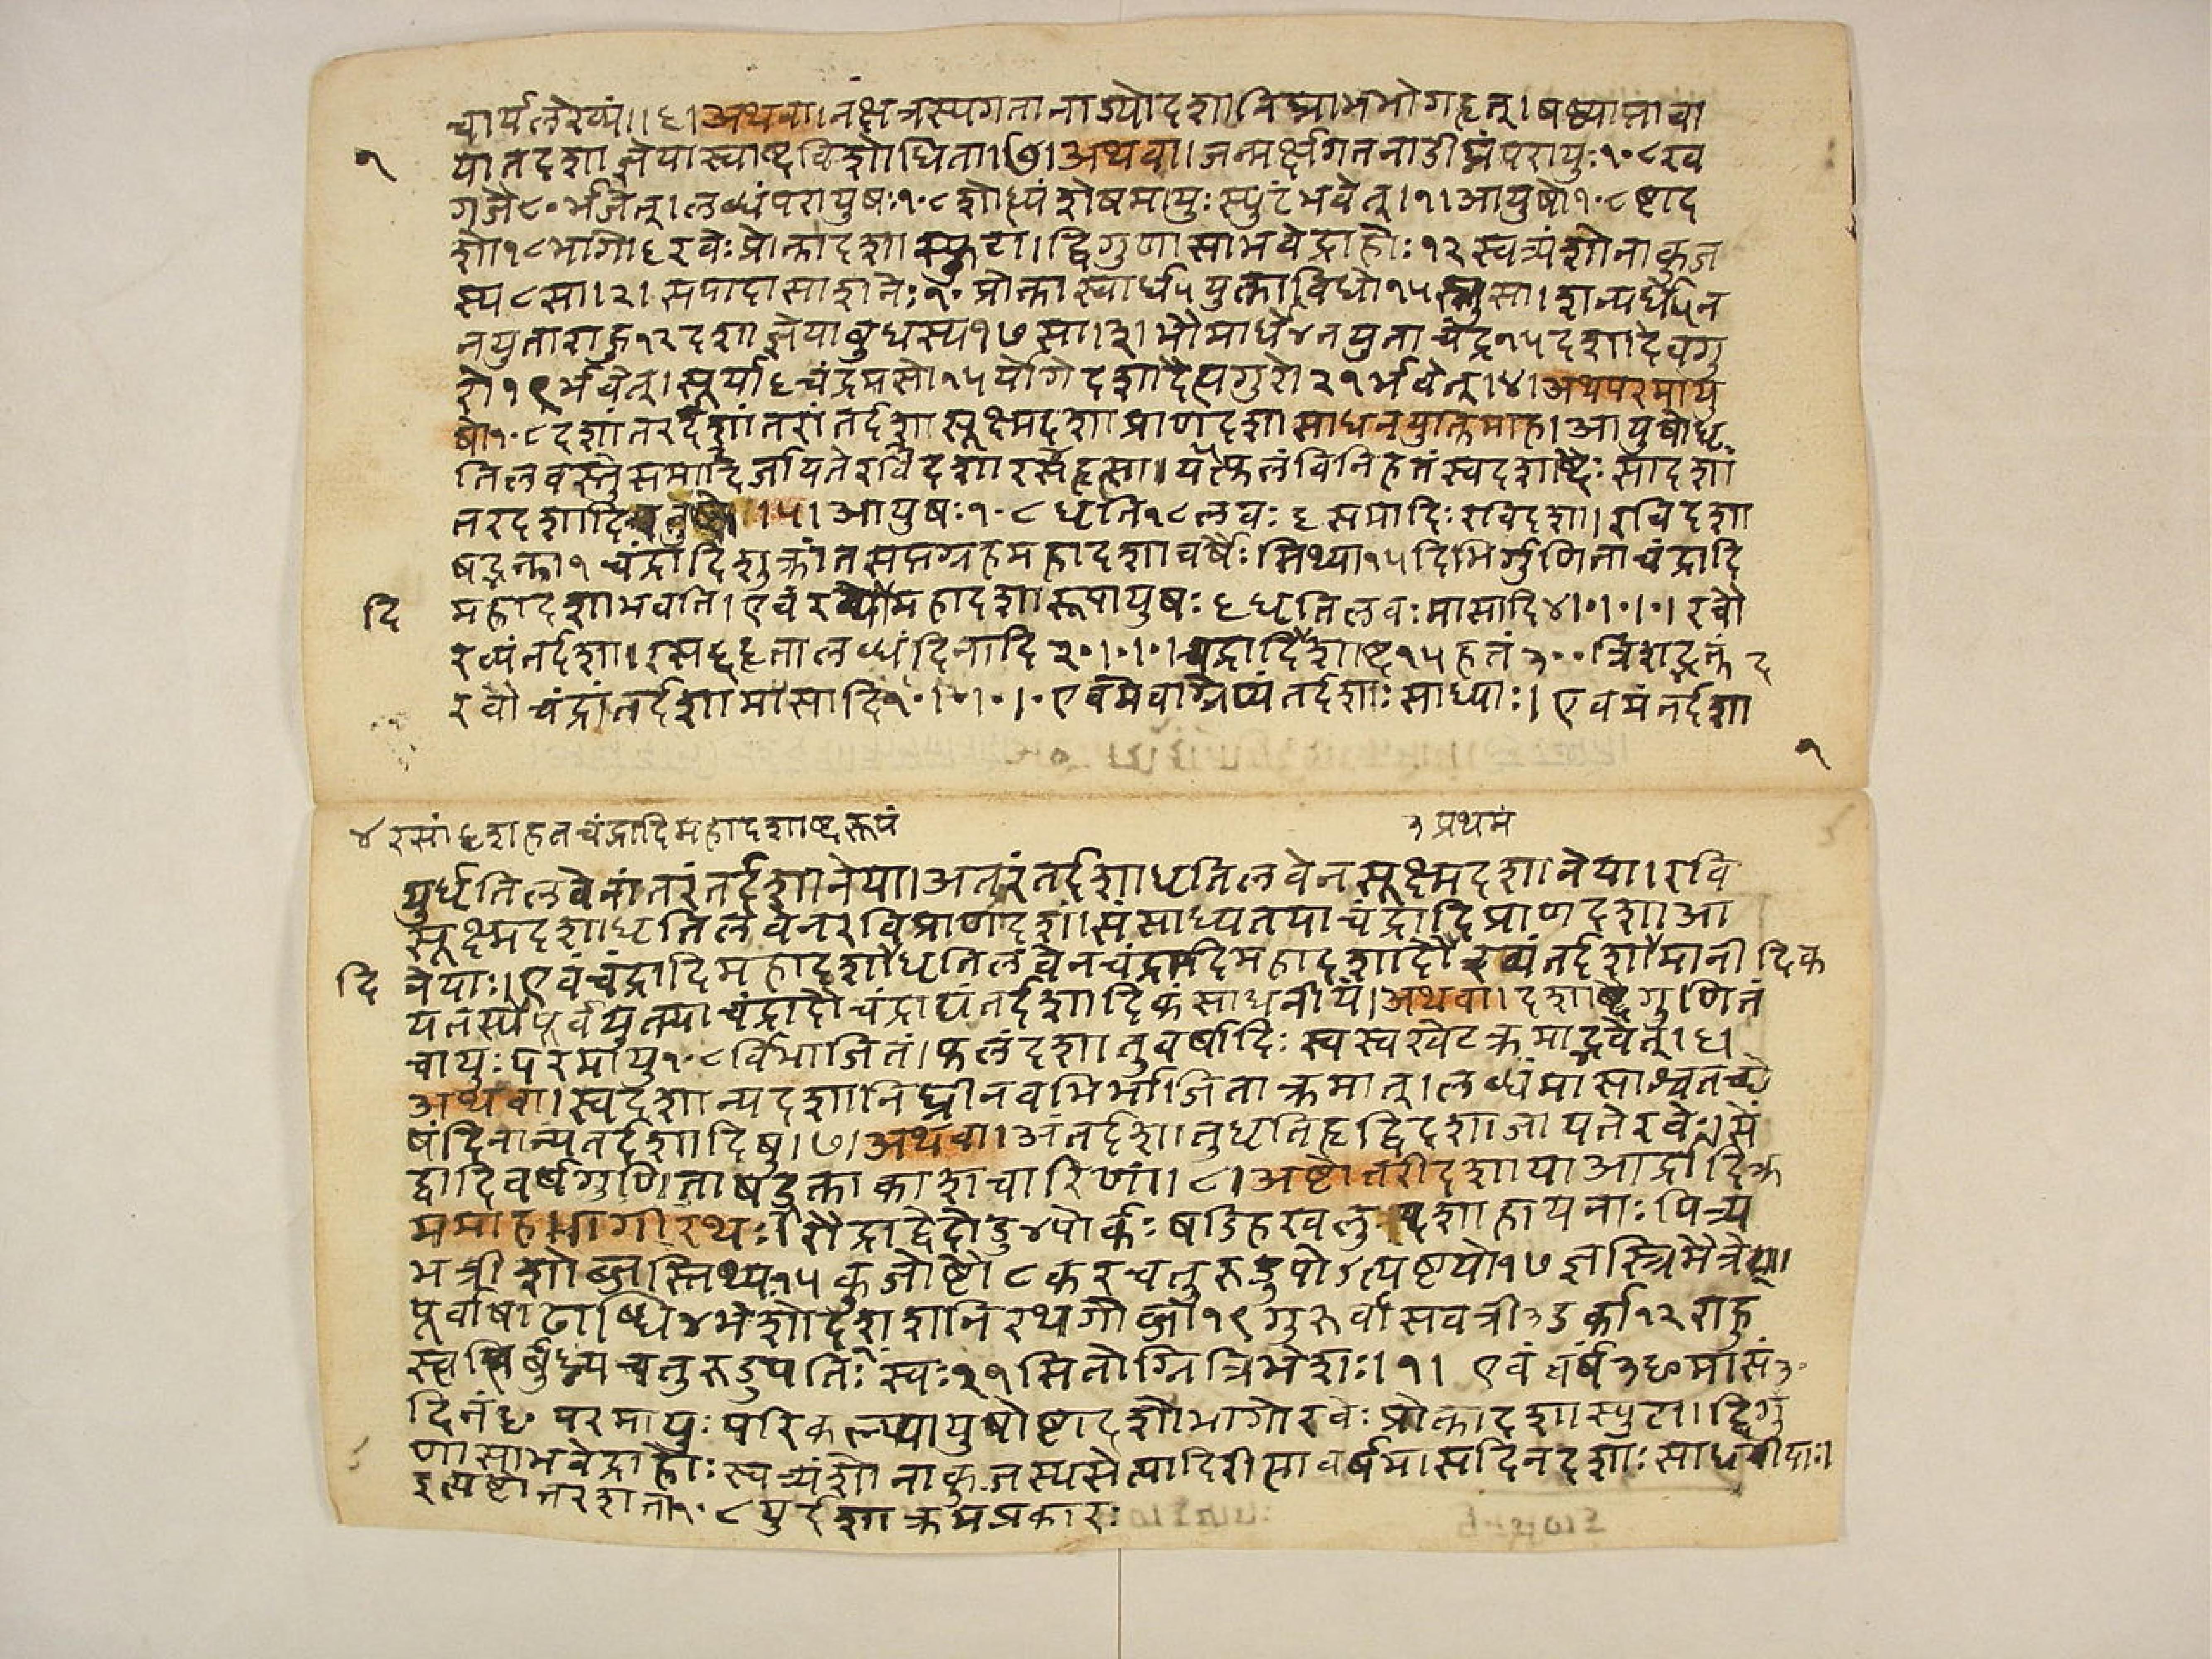 चार्यलेख्यं।।६।अथवा।नक्षत्रस्यगतानाड्योदशानिघ्नाभभोगहृत्।षष्ट्याप्तावा
१
यातदशाज्ञेयास्वाब्दविशोधिता।७।अथवा।जन्मर्क्षगतनाडीघ्नंपरायुः१०८खव
गजै८०र्भजेत्।लब्धंपरायुषः१०८शोध्यंशेषमायुःस्फुटंभवेत्।१।आयुषो१०८ष्टाद
शो१८भागो६रवेःप्रोक्तादशास्फुटा।द्विगुणासाभवेद्राहोः१२स्वत्र्यंशोनाकुज
स्य८सा।२।सपादासाशनेः१०प्रोक्तास्वार्ध५युक्ताविधो१५स्तुसा।शन्यर्धे५न
नयुताराहु१२दशाज्ञेयाबुधस्य१७सा।३।भौमार्धे४नयुताचंद्र१५दशादेवगु
रो१९र्भवेत्।सूर्या६चंद्रमसो१५र्योगेदशादैत्यगुरो२१र्भवेत्।४।अथपरमायु
षो१०८दशांतरर्दशांतरांतर्दशासूक्ष्मदशाप्राणदशासाधनयुक्तिमाह।आयुषोधृ
तिलवस्तुसमादिर्जायतेरविदशारसहृत्सा।यत्फलंविनिहतंस्वदशाब्दैःसादशां
तरदशादि ।५।आयुषः१०८धृति१८लवः६समादिःरविदशा।रविदशा
षड्भक्ता१चंद्रादिशुक्रांतसप्तग्रहमहादशावर्षैःस्तिथ्या१५दिभिर्गुणिताचंद्रादि
दि
महादशाभवति।एवंरव्यौमहादशारूपायुषः६धृतिलवःमासादि४।०।०।०।रवौ
रव्यंतर्दशा।रस६हृतालब्धंदिनादि२०।०।०।चंद्रादिदशाब्द१५हतं३००त्रिंशद्भक्तं
रवौचंद्रांतर्दशामासादि१०।०।०।०एवमेवाग्रेप्यंतर्दशाःसाध्याः।एवमंतर्दशा
१
४रसां६शहतचंद्रादिमहादशाब्दरूपं
३प्रथमं
युर्धृतिलवेनांतरंतर्दशानेया।अतरंतर्दशाधृतिलवेनसूक्ष्मदशानेया।रवि
सूक्ष्मदशाधृतिलवेनरविप्राणदशां।संसाध्यतयाचंद्रादिप्राणदशाआ
दि
नेयाः।एवंचंद्रादिमहादशाधृतिलवेनचंद्रादिमहादशादौरव्यंतर्दशामानी
दिक
यतस्यैपूर्वयुक्त्याचंद्रादौचंद्राद्यंतर्दशादिकंसाधनीयं।अथवा।दशाब्दैर्गुणितं
चायुःपरमायु१०८र्विभाजितं।फलंदशातुवर्षादिःस्वस्वखेटक्रमाद्भवेत्।६।
अथवा।स्वदशान्यदशानिघ्नीनवभिर्भाजिताक्रमात्।लब्धंमासाश्चतच्छे
षंदिनान्यंतर्दशादिषु।७।अथवा।अंतर्दशातुधृतिहृद्विदशाजायतेरवेः।सें
द्वादिवर्षगुणिताषड्भक्ताकाशचारिणां।८।अष्टोत्तरीदशायाआर्द्रादिक्र
ममाहभागीरथः।रौद्राद्वेदोडु४पोर्कःषडिहखलुदशाहायनाःपित्र्य
भत्रीशोब्जस्तिथ्य१५कुजोष्टौ८करचतुरुडुपोऽत्यष्टयो१७ज्ञस्त्रिमैत्रे
पूर्वाषाढाब्धि४भेशोदशशनिरथगोब्जौ१९गुरुर्वासवत्री३डर्का१२राहु
चतुरुडुपतिःस्वः२१सितोग्नित्रिभेशः।१। एवंवर्ष३६०मासं३०
दिनं६०परमायुःपरिकल्प्यायुषोष्टादशोभागोरवेःप्रोक्तादशास्फुटा।द्विगु
णासाभवेद्राहोःस्वत्र्यंशोनाकुजस्यसेत्यादिरीत्यावर्षमासदिनदशाःसाधनीयाः।
इत्यष्टोत्तरशता१०८युर्दशाक्रमप्रकारः